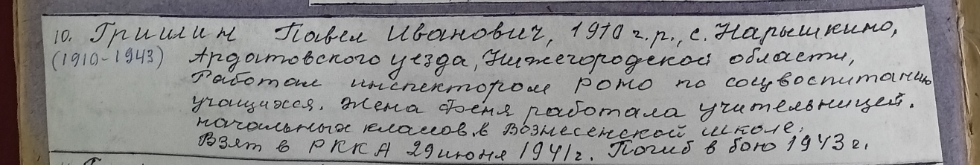 10. Гришин Павел Иванович, 1910 г.р., с. Нарышкино,
(1910-1943) Ардатовского уезда, Нижегородской области,
Работал инспектором РОНО по соцвоспитанию
учащихся. Жена Феня работала учительницей.
начальных классов в Вознесенской школе.
Взят в РККА 29 июня 1941г. Погиб в бою 1943 г.